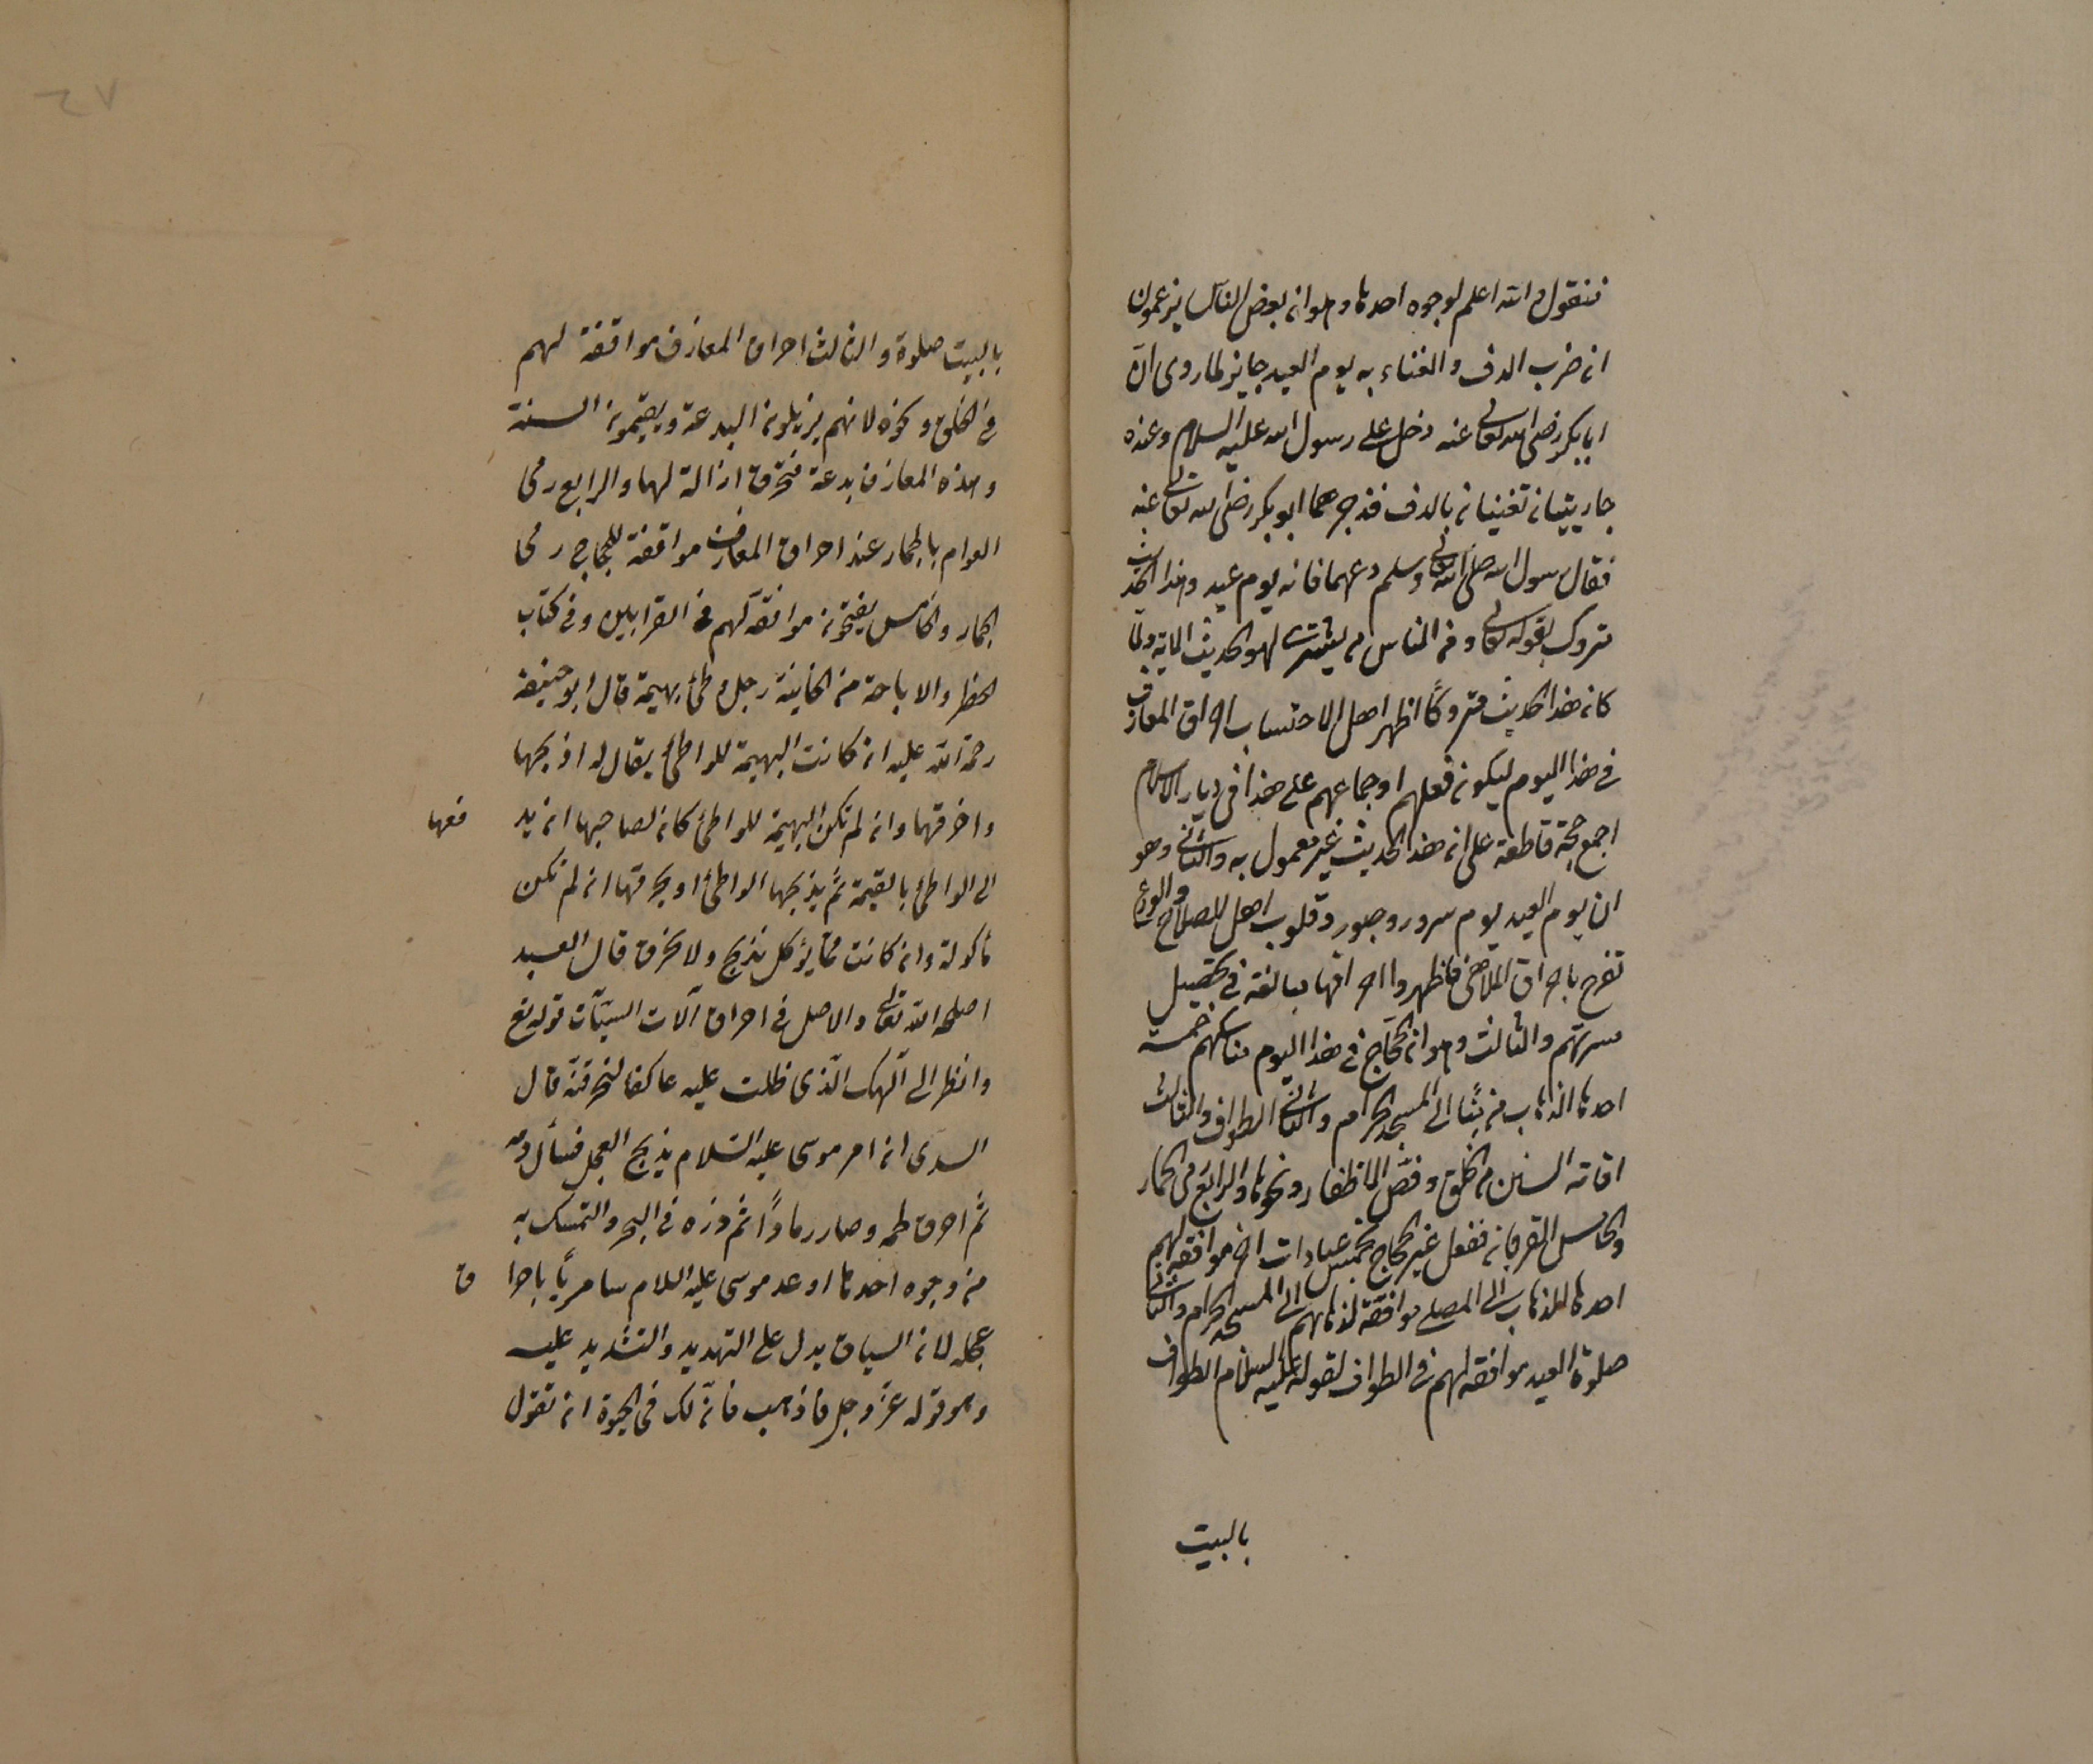 فنقول والله اعلم لوجوه احدها وهو ان بعض الناس يزعمون
ان ضرب الدف والغناء به يوم العيد جايز لما روى ان
ابابكر رضى الله تعالى عنه دخل على رسول الله عليه السلام وعنده
جاريتان تغنيان بالدف فزجرهما ابو بكر رضى الله تعالى عنه
فقال رسول الله صلى الله تعالى وسلم دعهما فانه يوم عيد وهذا الحديث
متروك بقوله تعالى ومن الناس من يشترى لهو الحديث الاية ولما
كان هذا الحديث متروكاً اظهر اهل الاحتساب احراق المعازف
فى هذا اليوم ليكون فعلهم اوجماعهم على هذا فى ديار الاسلام
اجمع حجة قاطعة على ان هذا الحديث غير معمول به والثانى وهو
ان يوم العيد يوم سرور وحبور وقلوب اهل الصلاح والورع
تفرح باحراق الملاهى فاظهروا احراقها مبالغة فى تحصيل
مسرتهم والثالث وهو ان الحاج فى هذا اليوم مناسكهم خمسة
احدها الذهاب من منًا الى المسجد الحرام والثانى الطواف والثالث
اقامة السنن من الحلق وقص الاظفار ونحوها والرابع رمى الجمار
والخامس القربان ففعل غير الحاج خمس عبادات اخر موافقة لهم
احدها الذهاب الى المصلى موافقة لذهابهم الى المسجد الحرام والثانى
صلوة العيد موافقة لهم فى الطواف لقوله عليه السلام الطواف
بالبيت
بالبيت صلوة والثالث احراق المعازف موافقة لهم
فى الحلق ونحوه لانهم يزيلون البدعة ويقيمون السنة
وهذه المعازف بدعة فتحرق ازالة لها والرابع رمى
العوام بالجمار عند احراق المعازف موافقة للحجاج رمى
الجمار والخامس يضحون موافقة لهم فى القرابين وفى كتاب
الحظر والاباحة من الخانية رجل وطئ بهيمة قال ابو حنيفة
رحمة الله عليه ان كانت البهيمة للواطئ يقال له اذبحها
واحرقها وان لم تكن البهيمة للواطئ كان لصاحبها ان يد فعها
الى الواطئ بالقيمة ثم يذبحها الواطئ او يحرقها ان لم تكن
مأكولة وان كانت مما يؤكل تذبح ولا تحرق قال العبد
اصلحه الله تعالى والاصل فى احراق آلات السيئات قوله تع
وانظر الى الهك الذى ظلت عليه عاكفا لنحرقنه قال
السدى ان امر موسى عليه السلام بذبح العجل فسأل دمه
ثم احرق لحمه وصار رماداً ثم ذره فى البحر والتمسك به
من وجوه احدها اوعد موسى عليه السلام سامرياً باحرا ق
عجله لان السياق يدل على التهديد والتشديد عليه
وهو قوله عز وجل فاذهب فان لك فى الحيوة ان تقول